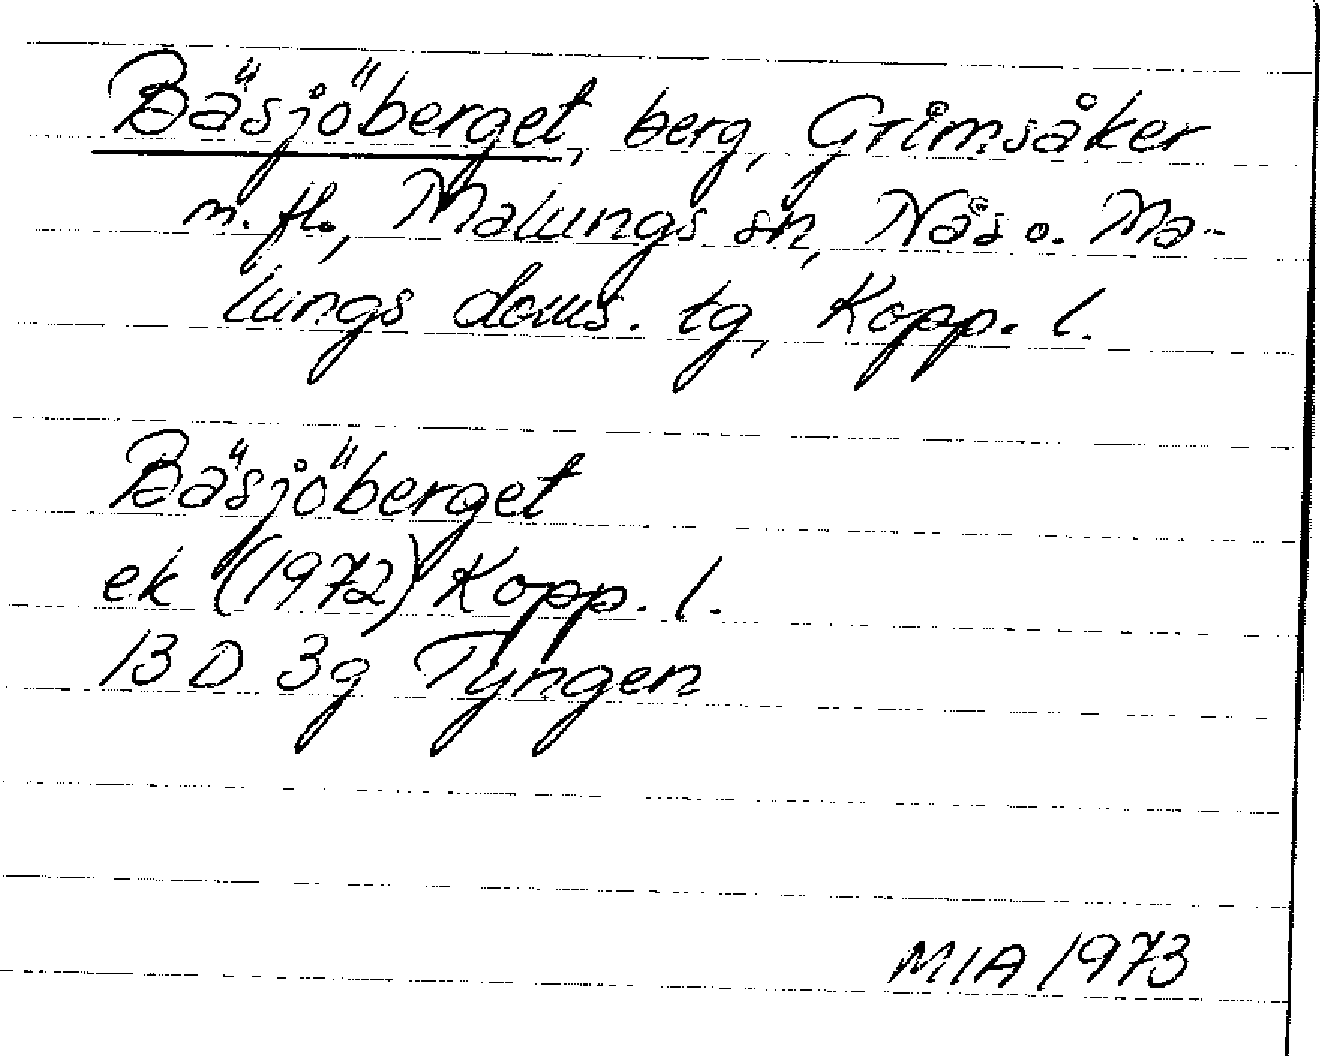 Bäsjöberget, berg, Grimsåker
m. fl., Malungs sn, Nås o. Ma-
lungs doms. tg, Kopp. l.
Bäsjöberget
ek (1972) Kopp. l.
13 D 3g Tyngen
MIA 1973